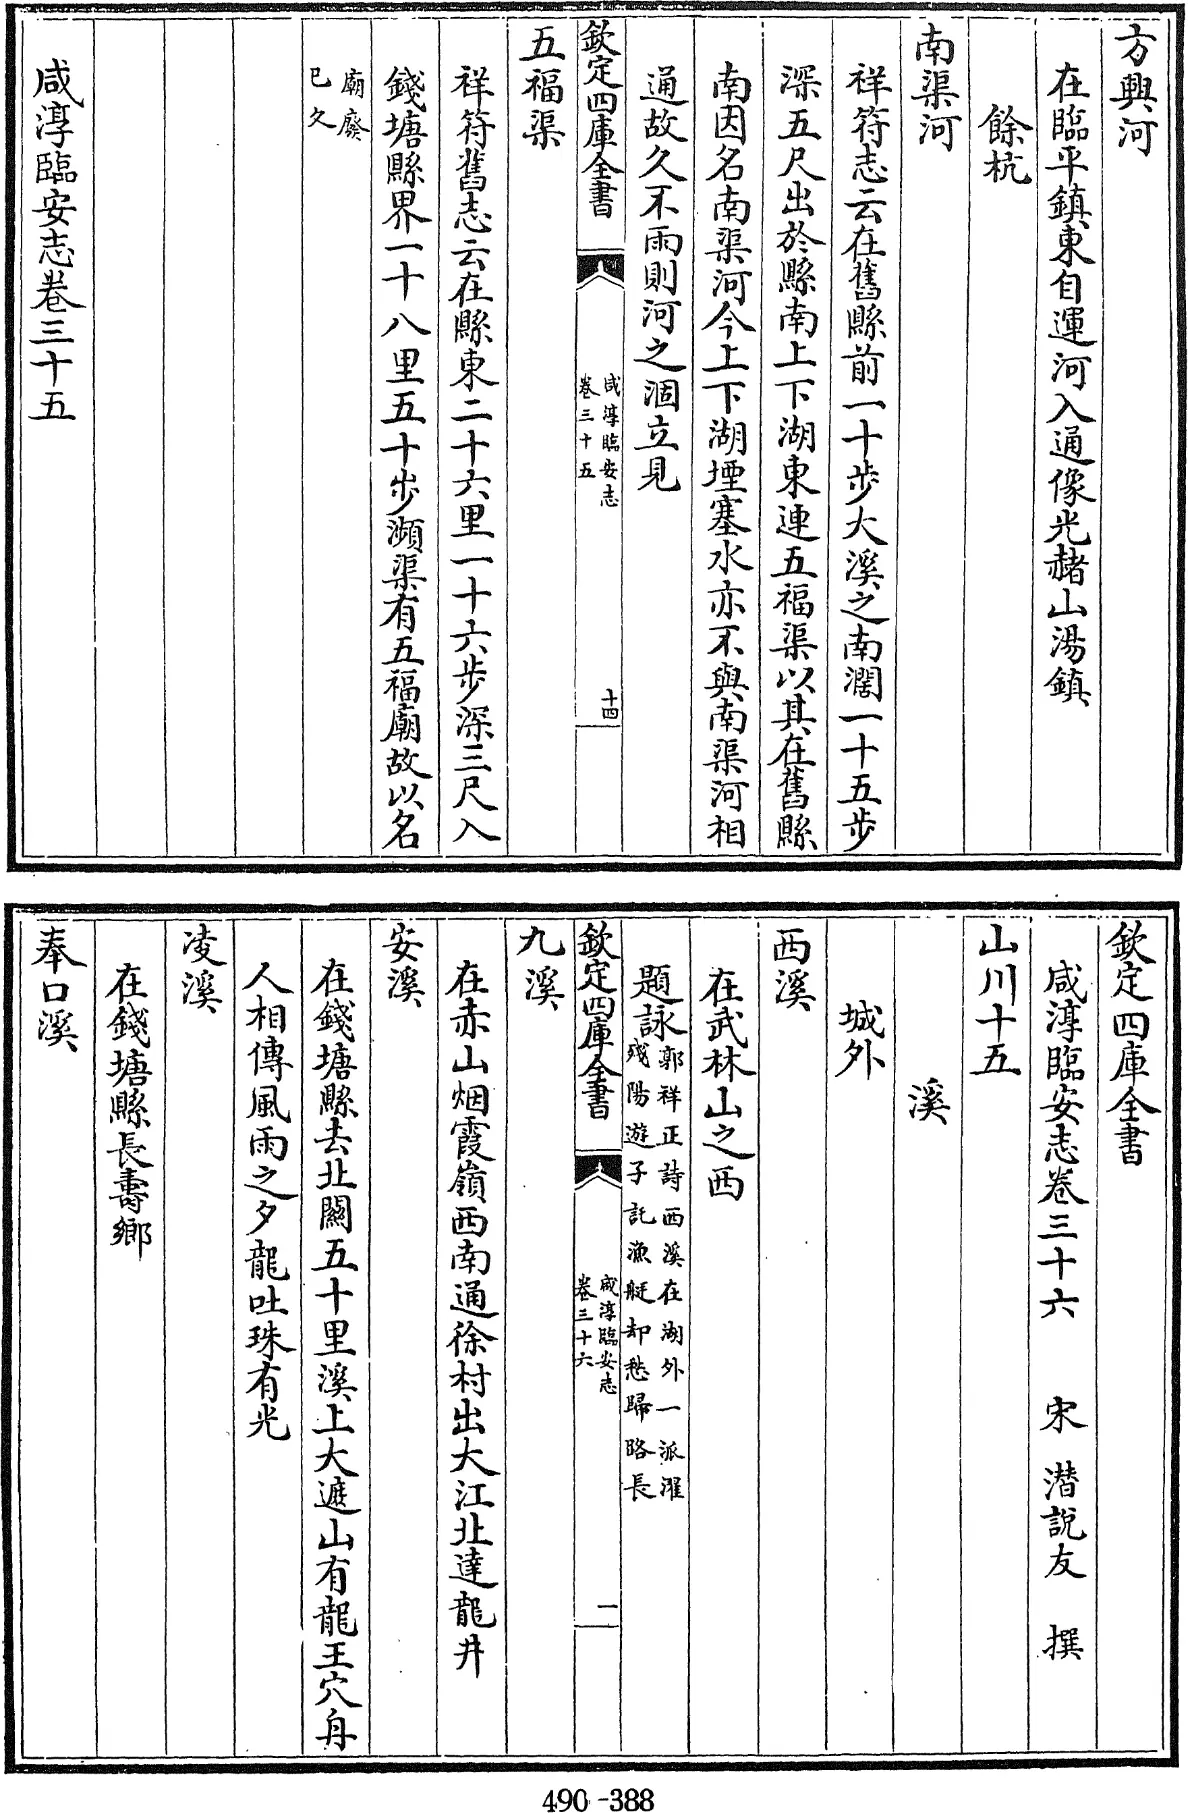 方興河
在臨平鎮東自運河入通像光赭山湯鎮
餘杭
南渠河
祥符志云在舊縣前一十步大溪之南濶一十五步
深五尺出於縣南上下湖東連五福渠以其在舊縣
南因名南渠河今上下湖堙塞水亦不與南渠河相
通故久不雨則河之涸立見
欽定四庫全書
咸淳臨安志
卷三十五
十四
五福渠
祥符舊志云在縣東二十六里一十六步深三尺入
錢塘縣界一十八里五十步瀕渠有五福廟故以名
廟廢
已久
咸淳臨安志卷三十五
欽定四庫全書
咸淳臨安志卷三十六 宋 潛說友 撰
山川十五
溪
城外
西溪
在武林山之西
題詠
郭祥正詩西溪在湖外一派濯
殘陽遊子託漁艇却愁歸路長
欽定四庫全書
咸淳臨安志
卷三十六
一
九溪
在赤山烟霞嶺西南通徐村出大江北達龍井
安溪
在錢塘縣去北關五十里溪上大遮山有龍王穴舟
人相傳風雨之夕龍吐珠有光
凌溪
在錢塘縣長壽鄉
奉口溪
490-388